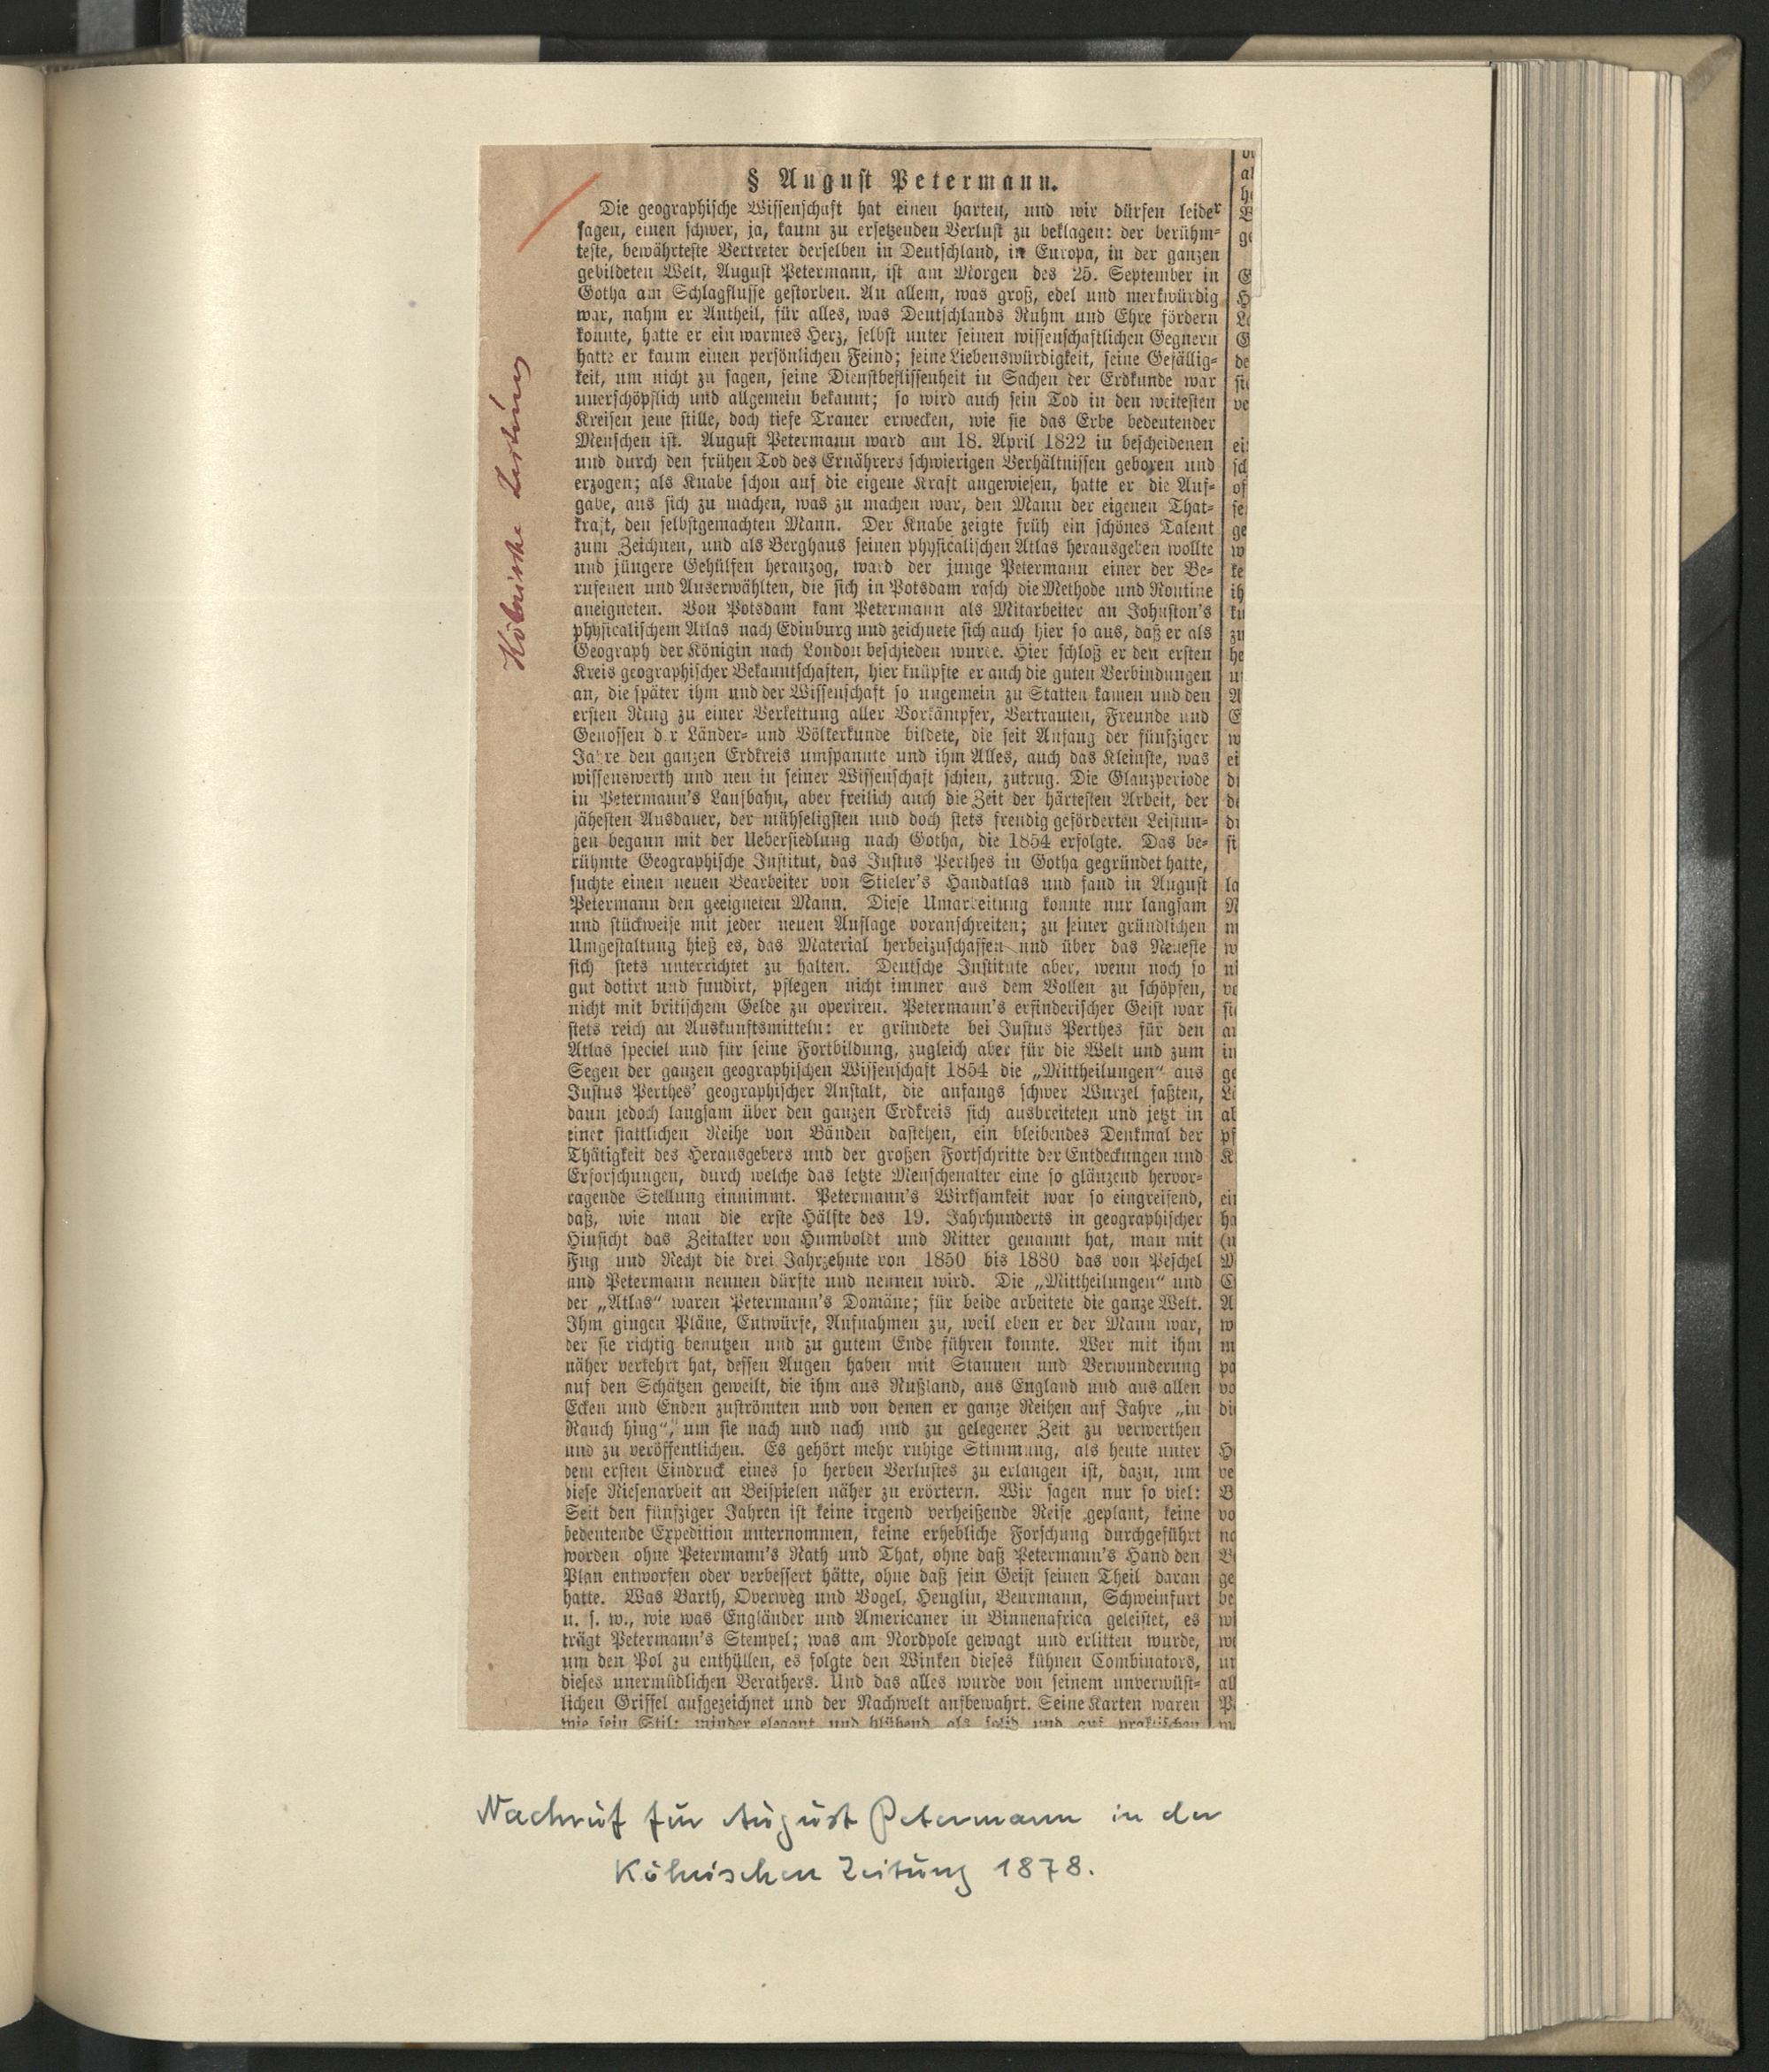 § August Petermann.
Die geographische Wissenschaft hat einen harten, und wir dürfen leider
sagen, einen schwer, ja, kaum zu ersetzenden Verlust zu beklagen: der berühm-
teste, bewährteste Vertreter derselben in Deutschland, in Europa, in der ganzen
gebildeten Welt, August Petermann, ist am Morgen des 25. September in
Gotha am Schlagflusse gestorben. An allem, was groß, edel und merkwürdig
war, nahm er Antheil, für alles, was Deutschlands Ruhm und Ehre fördern
konnte, hatte er ein warmes Herz, selbst unter seinen wissenschaftlichen Gegnern
hatte er kaum einen persönlichen Feind; seine Liebenswürdigkeit, seine Gefällig-
keit, um nicht zu sagen, seine Dienstbeflissenheit in Sachen der Erdkunde war
unerschöpflich und allgemein bekannt; so wird auch sein Tod in den weitesten
Kreisen jene stille, doch tiefe Trauer erwecken, wie sie das Erbe bedeutender
Menschen ist. August Petermann ward am 18. April 1822 in bescheidenen
und durch den frühen Tod des Ernährers schwierigen Verhältnissen geboren und
erzogen; als Knabe schon auf die eigene Kraft angewiesen, hatte er die Auf-
gabe, aus sich zu machen, was zu machen war, den Mann der eigenen That-
kraft, den selbstgemachten Mann. Der Knabe zeigte früh ein schönes Talent
zum Zeichnen, und als Berghaus seinen physicalischen Atlas herausgeben wollte
und jüngere Gehülfen heranzog, ward der junge Petermann einer der Be-
rufenen und Auserwählten, die sich in Potsdam rasch die Methode und Routine
aneigneten. Von Potsdam kam Petermann als Mitarbeiter an Johnston's
physicalischem Atlas nach Edinburg und zeichnete sich auch hier so aus, daß er als
Geograph der Königin nach London beschieden wurde. Hier schloß er den ersten
Kreis geographischer Bekanntschaften, hier knüpfte er auch die guten Verbindungen
an, die später ihm und der Wissenschaft so ungemein zu Statten kamen und den
ersten Ring zu einer Verkettung aller Vorkämpfer, Vertrauten, Freunde und
Genossen der Länder- und Völkerkunde bildete, die seit Anfang der fünfziger
Jahre den ganzen Erdkreis umspannte und ihm Alles, auch das Kleinste, was
wissenswerth und neu in seiner Wissenschaft schien, zutrug. Die Glanzperiode
in Petermann's Laufbahn, aber freilich auch die Zeit der härtesten Arbeit, der
zähesten Ausdauer, der mühseligsten und doch stets freudig geförderten Leistun-
gen begann mit der Uebersiedlung nach Gotha, die 1854 erfolgte. Das be-
rühmte Geographische Institut, das Justus Perthes in Gotha gegründet hatte,
suchte einen neuen Bearbeiter von Stieler's Handatlas und fand in August
Petermann den geeigneten Mann. Diese Umarbeitung konnte nur langsam
und stückweise mit jeder neuen Auflage voranschreiten; zu seiner gründlichen
Umgestaltung hieß es, das Material herbeizuschaffen und über das Neueste
sich stets unterrichtet zu halten. Deutsche Institute aber, wenn noch so
gut dotirt und fundirt, pflegen nicht immer aus dem Vollen zu schöpfen,
nicht mit britischem Gelde zu operiren. Petermann's erfinderischer Geist war
stets reich an Auskunftsmitteln: er gründete bei Justus Perthes für den
Atlas speciel und für seine Fortbildung, zugleich aber für die Welt und zum
Segen der ganzen geographischen Wissenschaft 1854 die „Mittheilungen“ aus
Justus Perthes' geographischer Anstalt, die anfangs schwer Wurzel faßten,
dann jedoch langsam über den ganzen Erdkreis sich ausbreiteten und jetzt in
einer stattlichen Reihe von Bänden dastehen, ein bleibendes Denkmal der
Thätigkeit des Herausgebers und der großen Fortschritte der Entdeckungen und
Erforschungen, durch welche das letzte Menschenalter eine so glänzend hervor-
ragende Stellung einnimmt. Petermann's Wirksamkeit war so eingreifend,
daß, wie man die erste Hälfte des 19. Jahrhunderts in geographischer
Hinsicht das Zeitalter von Humboldt und Ritter genannt hat, man mit
Fug und Recht die drei Jahrzehnte von 1850 bis 1880 das von Peschel
und Petermann nennen dürfte und nennen wird. Die „Mittheilungen“ und
der „Atlas“ waren Petermann's Domäne; für beide arbeitete die ganze Welt.
Ihm gingen Pläne, Entwürfe, Aufnahmen zu, weil eben er der Mann war,
der sie richtig benutzen und zu gutem Ende führen konnte. Wer mit ihm
näher verkehrt hat, dessen Augen haben mit Staunen und Verwunderung
auf den Schätzen geweilt, die ihm aus Rußland, aus England und aus allen
Ecken und Enden zuströmten und von denen er ganze Reihen auf Jahre „in
Rauch hing“, um sie nach und nach und zu gelegener Zeit zu verwerthen
und zu veröffentlichen. Es gehört mehr ruhige Stimmung, als heute unter
dem ersten Eindruck eines so herben Verlustes zu erlangen ist, dazu, um
diese Riesenarbeit an Beispielen näher zu erörtern. Wir sagen nur so viel:
Seit den fünfziger Jahren ist keine irgend verheißende Reise geplant, keine
bedeutende Expedition unternommen, keine erhebliche Forschung durchgeführt
worden ohne Petermann's Rath und That, ohne daß Petermann's Hand den
Plan entworfen oder verbessert hätte, ohne daß sein Geist seinen Theil daran
hatte. Was Barth, Overweg und Vogel, Heuglin, Beurmann, Schweinfurt
u. s. w., wie was Engländer und Americaner in Binnenafrica geleistet, es
trägt Petermann's Stempel; was am Nordpole gewagt und erlitten wurde,
um den Pol zu enthüllen, es folgte den Winken dieses kühnen Combinators,
dieses unermüdlichen Berathers. Und das alles wurde von seinem unverwüst-
lichen Griffel aufgezeichnet und der Nachwelt aufbewahrt. Seine Karten waren
wie sein Stil: minder elegant und blühend als solid und auf praktischen
Kölnische Zeitung
Nachruf für August Petermann in der
Kölnischen Zeitung 1878.